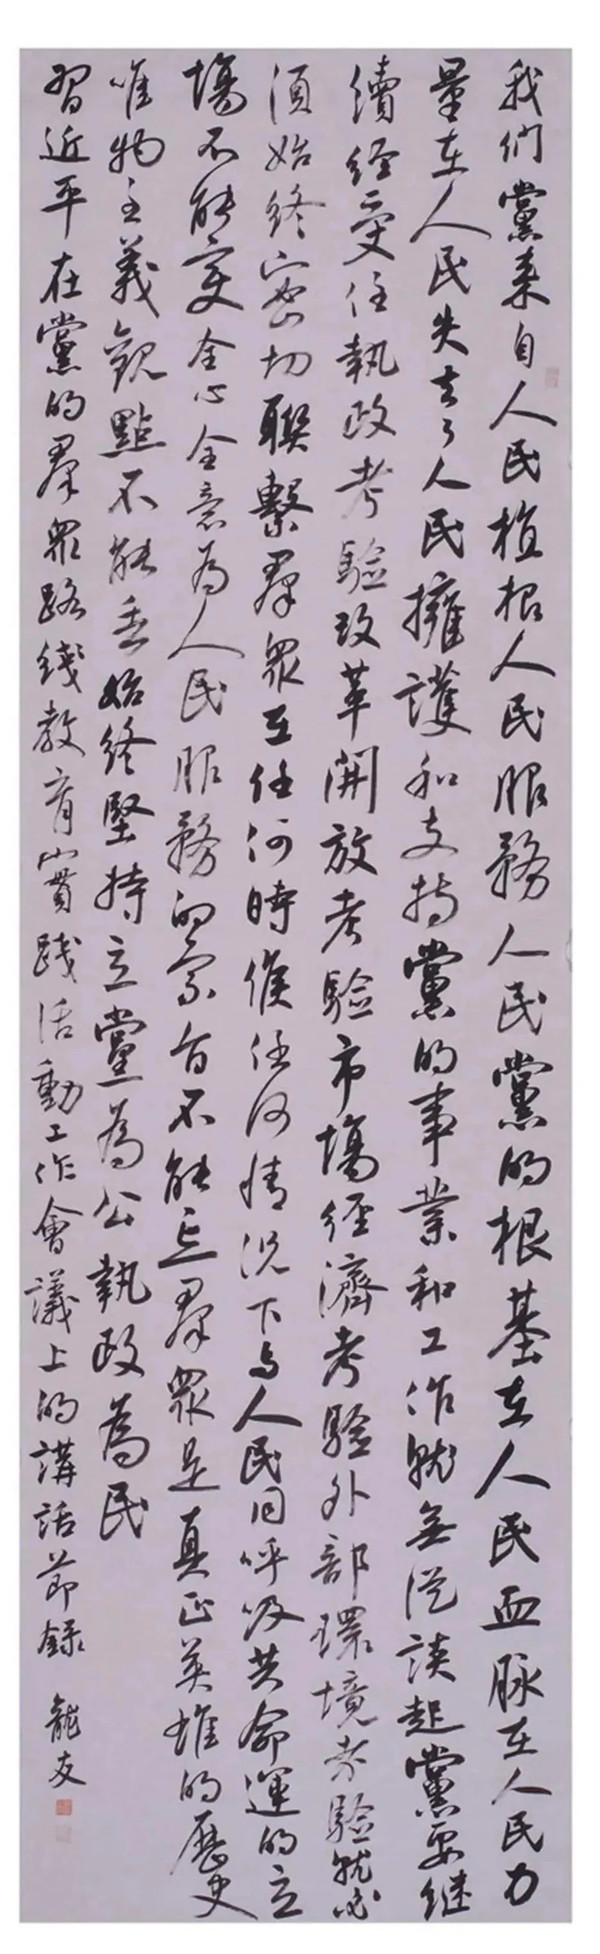 我们黨来自人民植根人民服務人民黨的根基在人民血脉在人民力
量在人民失去了人民擁護和支持黨的事業和工作就無從談起黨要继
續经受住執政考驗改革開放考驗市場经濟考驗外部環境考驗就必
須始终密切聯繫群眾在任何時候任何情況下与人民同呼吸共命運的立
場不能变全心全意为人民服務的宗旨不能忘群眾是真正英雄的歷史
唯物主義觀點不能丢始终堅持立黨為公執政為民
習近平在黨的群眾路线教育實践活動工作會議上的講話節録 龍友